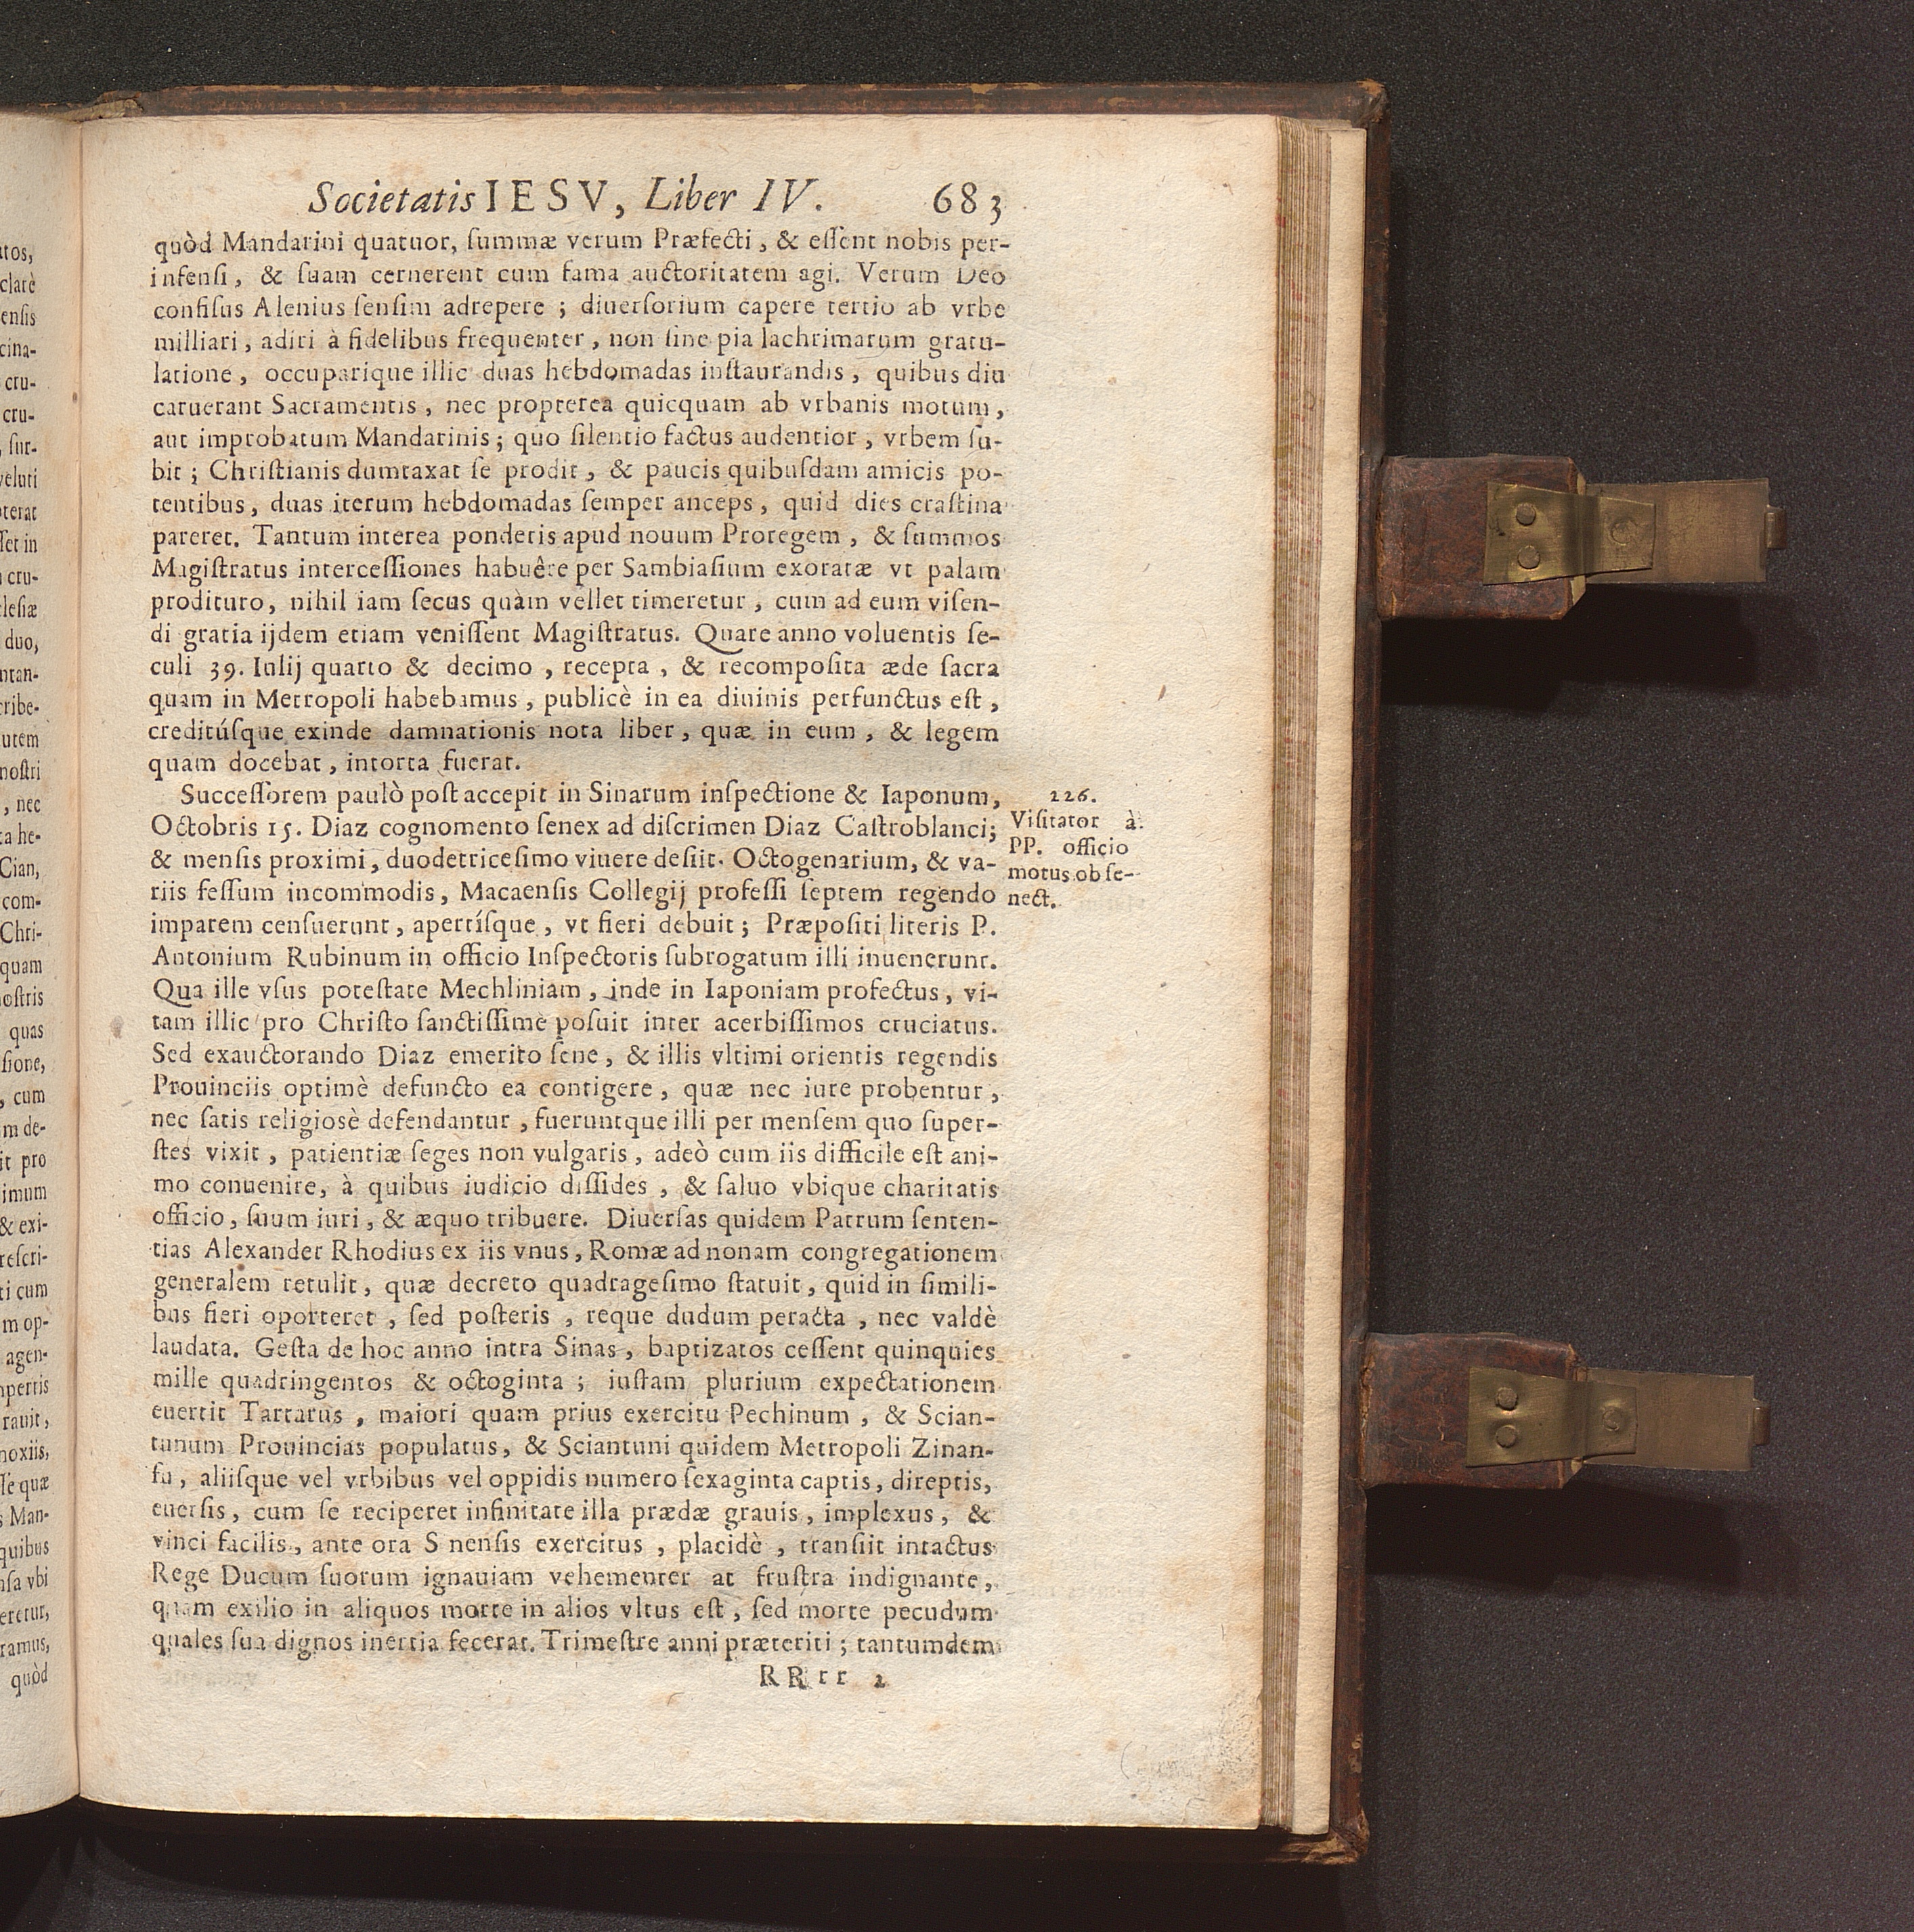 Societatis IESV, Liber IV. 683
quòd Mandarini quatuor, summæ verum Præfecti, & essent nobis per-
infensi, & suam cernerent cum fama auctoritatem agi. Verum Deo
confisus Alenius sensim adrepere ; diuersorium capere tertio ab vrbe
milliari, adiri à fidelibus frequenter, non sine pia lachrimarum gratu-
latione, occuparique illic duas hebdomadas instaurandis, quibus diu
caruerant Sacramentis, nec propterea quicquam ab vrbanis motum,
aut improbatum Mandarinis; quo silentio factus audentior, vrbem su-
bit ; Christianis dumtaxat se prodit, & paucis quibusdam amicis po-
tentibus, duas iterum hebdomadas semper anceps, quid dies crastina
pareret. Tantum interea ponderis apud nouum Proregem, & summos
Magistratus intercessiones habuêre per Sambiasium exoratæ vt palam
prodituro, nihil iam secus quàm vellet timeretur, cum ad eum visen-
di gratia ijdem etiam venissent Magistratus. Quare anno voluentis se-
culi 39. Iulij quarto & decimo, recepta, & recomposita æde sacra
quam in Metropoli habebamus, publicè in ea diuinis perfunctus est,
creditúsque exinde damnationis nota liber, quæ in eum, & legem
quam docebat, intorta fuerat.
Successorem paulò post accepit in Sinarum inspectione & Iaponum,
Octobris 15. Diaz cognomento senex ad discrimen Diaz Castroblanci;
& mensis proximi, duodetricesimo viuere desiit. Octogenarium, & va-
riis fessum incommodis, Macaensis Collegij professi septem regendo
imparem censuerunt, apertísque, vt fieri debuit ; Præpositi literis P.
Antonium Rubinum in officio Inspectoris subrogatum illi inuenerunt.
Qua ille vsus potestate Mechliniam, inde in Iaponiam profectus, vi-
tam illic pro Christo sanctissimè posuit inter acerbissimos cruciatus.
Sed exauctorando Diaz emerito sene, & illis vltimi orientis regendis
Prouinciis optimè defuncto ea contigere, quæ nec iure probentur,
nec satis religiosè defendantur, fueruntque illi per mensem quo super-
stes vixit, patientiæ seges non vulgaris, adeò cum iis difficile est ani-
mo conuenire, à quibus iudicio dissides, & saluo vbique charitatis
officio, suum iuri, & æquo tribuere. Diuersas quidem Patrum senten-
tias Alexander Rhodius ex iis vnus, Romæ ad nonam congregationem
generalem retulit, quæ decreto quadragesimo statuit, quid in simili-
bus fieri oporteret, sed posteris, reque dudum peracta, nec valdè
laudata. Gesta de hoc anno intra Sinas, baptizatos cessent quinquies
mille quadringentos & octoginta ; iustam plurium expectationem
euertit Tartarus, maiori quam prius exercitu Pechinum, & Scian-
tunum Prouincias populatus, & Sciantuni quidem Metropoli Zinan-
fu, aliisque vel vrbibus vel oppidis numero sexaginta captis, direptis,
euersis, cum se reciperet infinitate illa prædæ grauis, implexus, &
vinci facilis, ante ora S nensis exercitus, placidè, transiit intactus
Rege Ducum suorum ignauiam vehementer at frustra indignante,
quam exilio in aliquos morte in alios vltus est, sed morte pecudum
quales sua dignos inertia fecerat. Trimestre anni præteriti ; tantumdem
RRrr 2
226.
Visitator à
PP. officio
motus ob se-
nect.
clarè
ensis
cina-
cru-
cru-
veluti
cru-
duo,
nostri
, nec
Cian,
com-
Chri-
quam
quas
, cum
& exi-
agen-
Man-
quibus
quòd